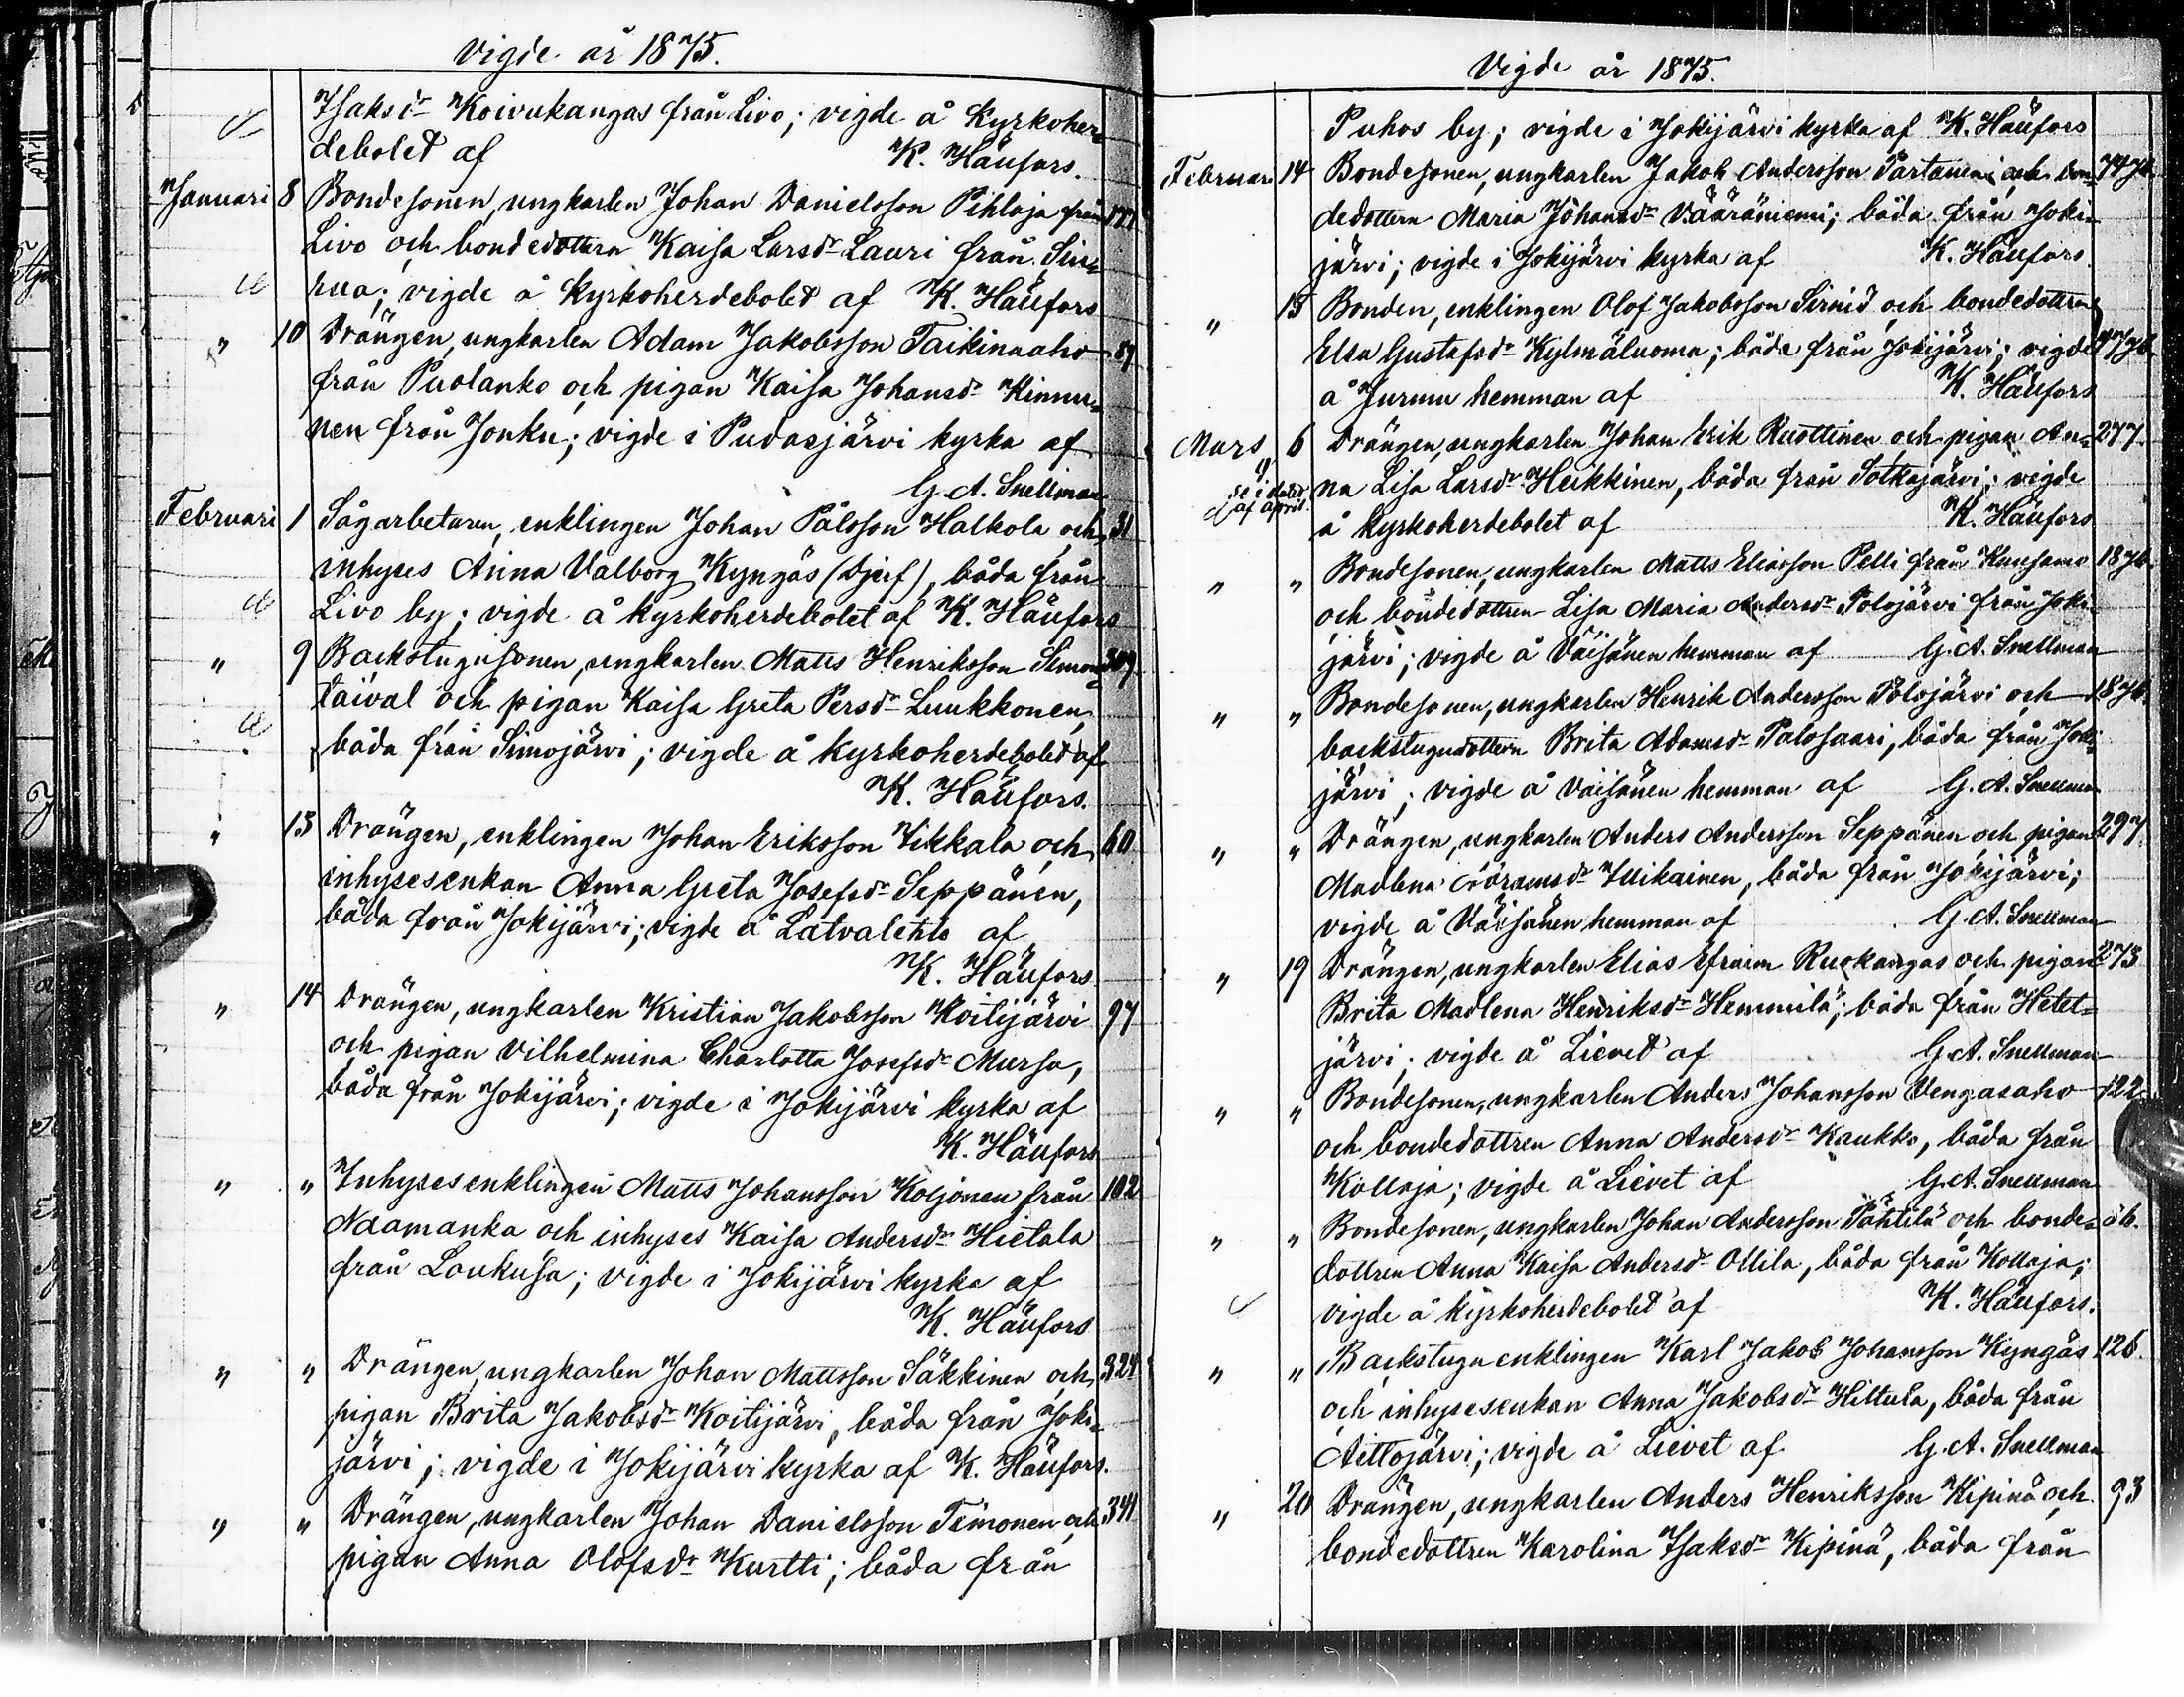 Vigde år 1875.
Isaksdr Koivukangas från Livo; vigde å Kyrkoher-
debolet af K. Häufors.
Januari 8 Bondesonen, ungkarlen Johan Danielsson Pihlaja från 177
Livo och bondedottern Kaisa Larsdr Lauri från Siu-
rua; vigde å Kyrkoherdebolet af K. Häufors
" 10 Drängen, ungkarlen Adam Jakobsson Taikinaaho 87
från Puolanko och pigan Kaisa Johansdr Kinnu-
nen från Jonku; vigde i Pudasjärvi kyrka af
G. A. Snellman
Februari 1 Sågarbetaren, enklingen Johan Pålsson Halkola och 31
inhyses Anna Valborg Kyngäs (Djerf), båda från
Livo by; vigde å Kyrkoherdebolet af K. Häufors
" 9 Backstugusonen, ungkarlen Matts Henriksson Simon 309
taival och pigan Kaisa Greta Persdr Luukkonen,
båda från Simojärvi; vigde å kyrkoherdebolet af
K. Häufors.
" 13 Drängen, enklingen Johan Eriksson Vikkala och 60
inhysesenkan Anna Greta Josefsdr Seppänen,
båda från Jokijärvi; vigde å Latvalehto af
K. Häufors
" 14 Drängen, ungkarlen Kristian Jakobsson Koitijärvi 97
och pigan Vilhelmina Charlotta Josefsdr Mursu,
båda från Jokijärvi; vigde i Jokijärvi kyrka af
K. Häufors
" " Inhysesenklingen Matts Johansson Koljonen från 102
Naamanka och inhyses Kaisa Andersdr Hietala
från Loukusa; vigde i Jokijärvi kyrka af
K. Häufors
" " Drängen, ungkarlen Johan Mattsson Säkkinen och 324
pigan Brita Jakobsdr Koitijärvi, båda från Joki-
järvi; vigde i Jokijärvi kyrka af K. Häufors.
" " Drängen, ungkarlen Johan Danielsson Timonen och 341
pigan Anna Olofsdr Kurtti; båda från
Vigde år 1875.
Puhos by; vigde i Jokijärvi kyrka af K. Häufors
Februari 14 Bondesonen, ungkarlen Jakob Andersson Partanen och bon-
dedottern Maria Johansdr Vääräniemi; båda från Joki-
järvi; vigde i Jokijärvi kyrka af K. Häufors.
" 15 Bonden, enklingen Olof Jakobsson Sirniö och bondedottren
Elsa Gustafsdr Kylmäluoma; båda från Jokijärvi; vigde
å Jurmu hemman af K. Häufors
Mars 6 Drängen, ungkarlen Johan Erik Ruottinen och pigan An- 277
na Lisa Larsdr Heikkinen, båda från Sotkajärvi; vigde
å kyrkoherdebolet af K. Häufors
" " Bondesonen, ungkarlen Matts Eliasson Pelli från Kuusamo
och bondedottren Lisa Maria Andersdr Polojärvi från Joki-
järvi; vigde å Väisänen hemman af G. A. Snellman
" " Bondesonen, ungkarlen Henrik Andersson Polojärvi och
backstugudottern Brita Adamsdr Palosaari, båda från Joki-
järvi; vigde å Väisänen hemman af G. A. Snellman
" " Drängen, ungkarlen Anders Andersson Seppänen och pigan 297
Madlena Göransdr Illikainen, båda från Jokijärvi;
vigde å Väisänen hemman af G. A. Snellman
" 19 Drängen, ungkarlen Elias Efraim Ruokangas och pigan 275
Brita Madlena Henriksdr Hemmilä; båda från Hetet-
järvi; vigde å Lievet af G. A. Snellman
" " Bondesonen, ungkarlen Anders Johansson Vengasaho 122
och bondedottren Anna Andersdr Kaukko, båda från
Kollaja; vigde å Lievet af G. A. Snellman
" " Bondesonen, ungkarlen Johan Andersson Pähtilä och bonde-
dottren Anna Kaisa Andersdr Ollila, båda från Kollaja;
vigde å kyrkoherdebolet af K. Häufors.
" " Backstuguenklingen Karl Jakob Johansson Kyngäs 126.
och inhysesenkan Anna Jakobsdr Hiltula, båda från
Aittojärvi; vigde å Lievet af G. A. Snellman
" 20 Drängen, ungkarlen Anders Henriksson Kipinä och 93
bondedottren Karolina Isaksdr Kipinä, båda från